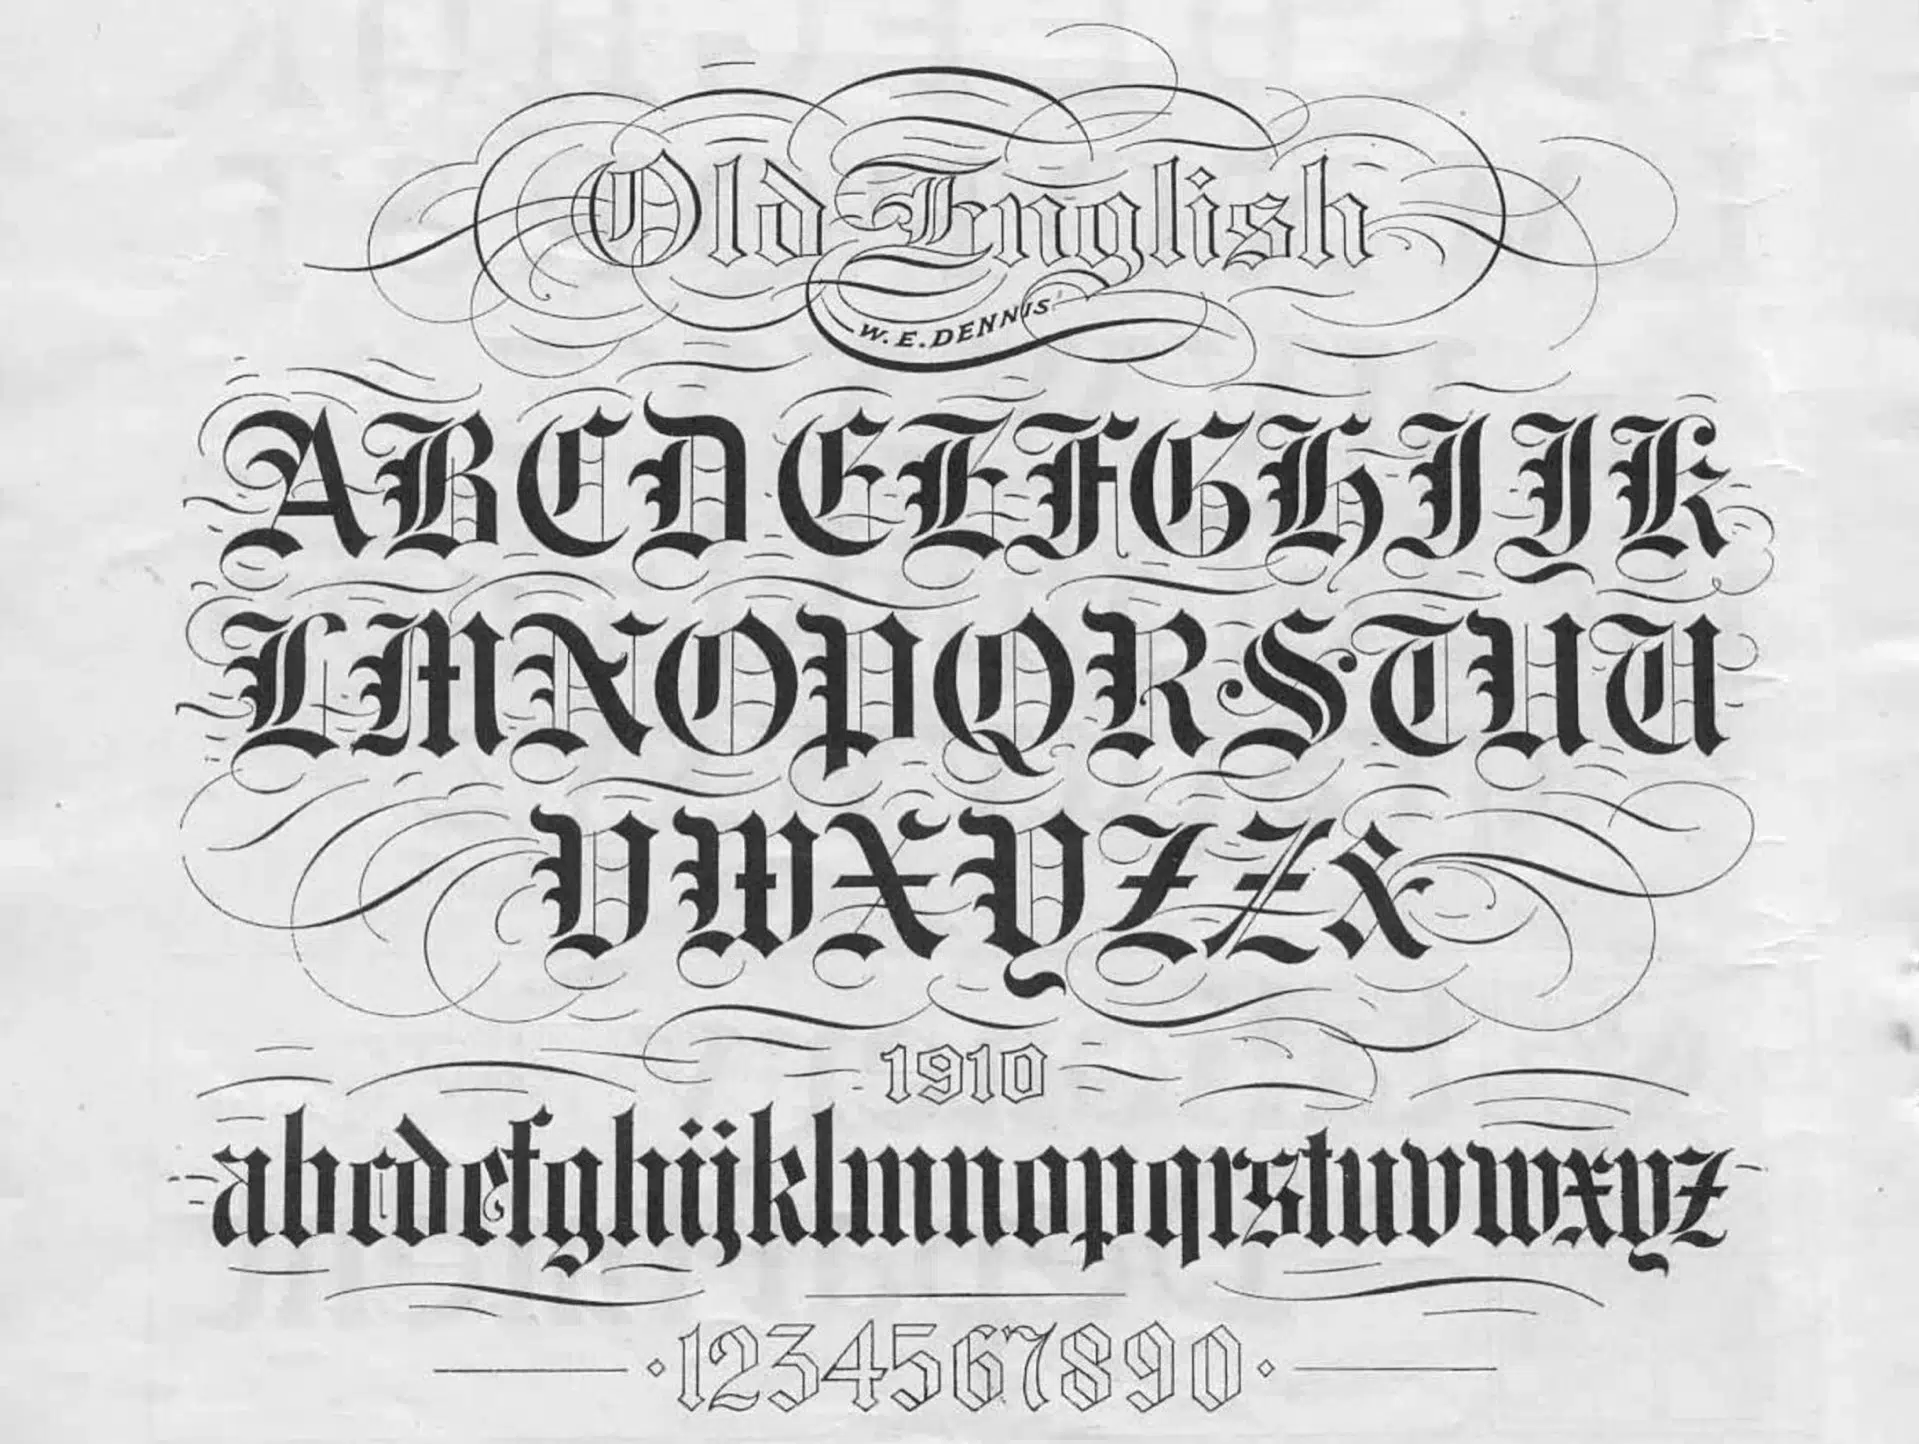 Old English
W. E. DENNIS
ABCDEEFGHIJK
LMNOPQRSTUU
VWXYZZ&
1910
abcdefghijklmnopqrstuvwxyz
1234567890